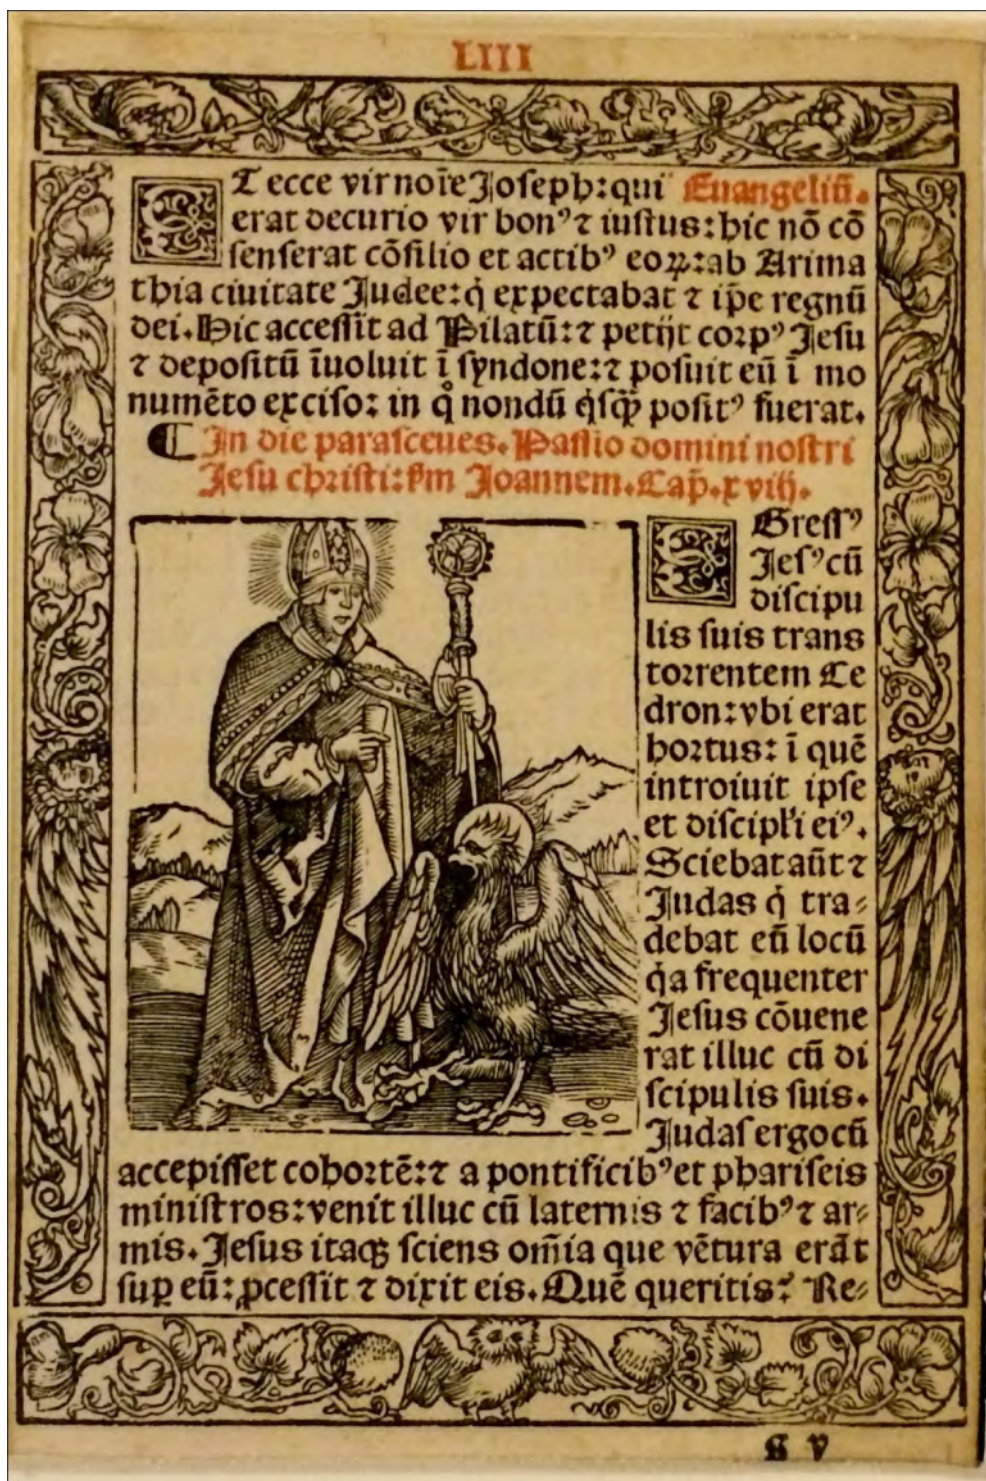 LIII
ET ecce vir noīe Joseph: qui Euangeliū.
erat decurio vir bonꝰ ⁊ iustus: hic nō cō
senserat cōsilio et actibꝰ eoꝝ: ab Arima
thia ciuitate Judee: q̇ expectabat ⁊ ip̄e regnū
dei. Hic accessit ad Pilatū: ⁊ petijt corpꝰ Jesu
⁊ depositū īuoluit ī syndone: ⁊ posuit eū ī mo
numēto exciso: in q̊ nondū q̇sꝙ̄ positꝰ fuerat.
In die parasceues. Passio domini nostri
Jesu christi: ẜm Joannem. Cap̄. xviij.
EGressꝰ
Jesꝰ cū
discipu
lis suis trans
torrentem Ce
dron: vbi erat
hortus: ī quē
introiuit ipse
et discipl'i eiꝰ.
Sciebat aūt ⁊
Judas q̇ tra⸗
debat eū locū
q̇a frequenter
Jesus cōuene
rat illuc cū di
scipulis suis.
Judas ergo cū
accepisset cohortē: ⁊ a pontificibꝰ et phariseis
ministros: venit illuc cū laternis ⁊ facibꝰ ⁊ ar⸗
mis. Jesus itaqꝫ sciens om̄ia que vētura erāt
suꝑ eū: ꝓcessit ⁊ dixit eis. Quē queritis? Re⸗
G v